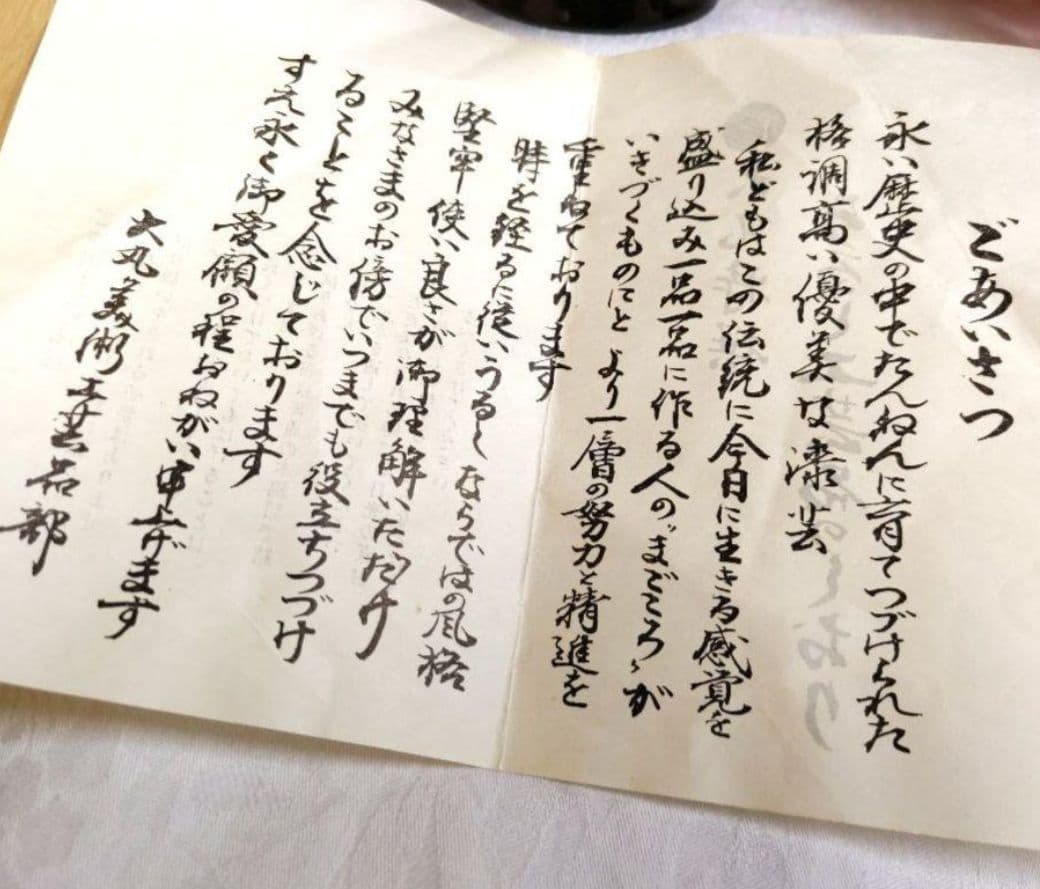 ごあいさつ
永い歴史の中でたんねんに育てつづけられた
格調高い優美な漆芸
私どもはこの伝統に今日に生きる感覚を
盛り込み一品一品に作る人の〝まごころ〟が
いきづくものにと より一層の努力と精進を
重ねております
時を経るに従いうるしならではの風格
堅牢 使い良さが御理解いただけ
みなさまのお傍でいつまでも役立ちつづけ
ることを念じております
すえ永く御愛顧の程おねがい申上げます
大丸美術工芸品部